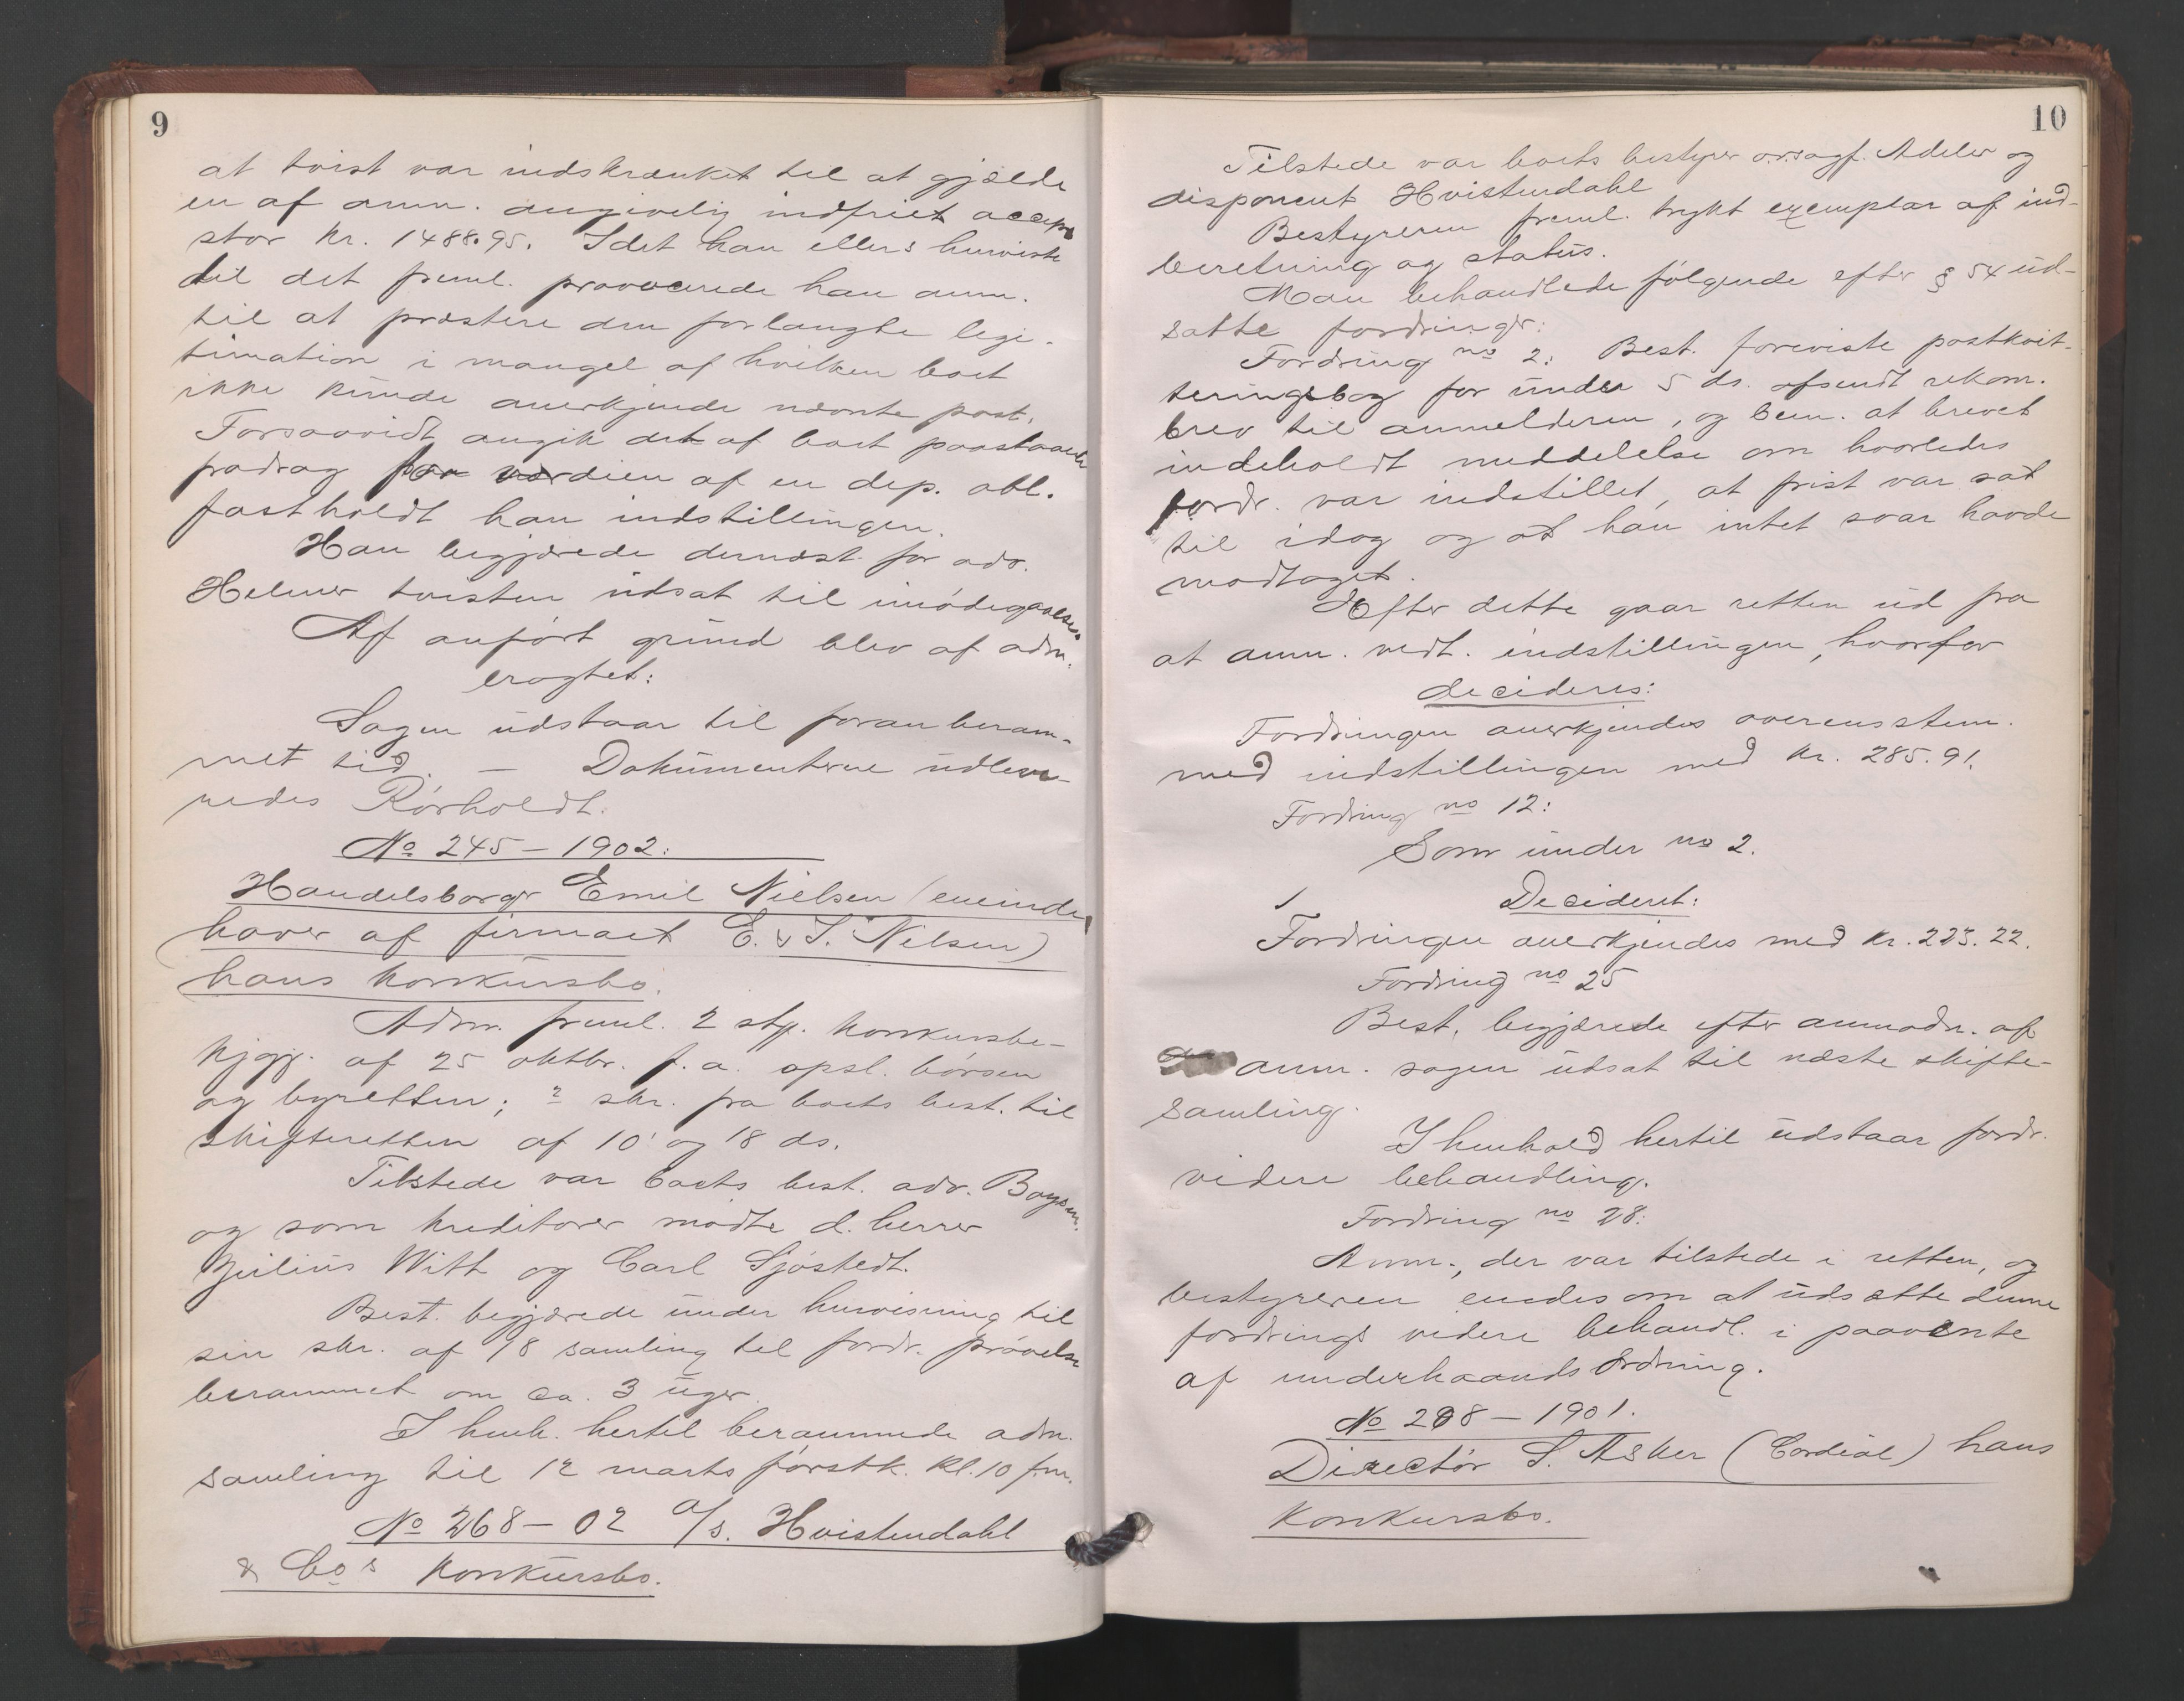 9
at tvist var indskrænket til at gjælde
en af anm. angivelig indfriet accept
stor kr. 1488.95. Idet han ellers henviste
til det freml. provocerede han anm.
til at præstere den forlangte legi-
timation i mangel af hvilken boet
ikke kunde anerkjende nævnte post.
Forsaavidt angik det af boet paastaaede
fradrag for værdien af en dep. obl.
fastholdt han indstillingen.
Han begjærede dernæst for adv.
Helmer tvisten udsat til imødegaaelse.
Af anført grund blev af adm.
eragtet:
Sagen udstaar til foran beram-
met tid. — Dokumenterne udleve-
redes Rörholdt.
No 245 – 1902.
Handelsborger Emil Nielsen (eneinde-
haver af firmaet E. & S. Nilsen)
hans konkursbo.
Adm. freml. 2 stp. konkursbe-
kjgj. af 25 oktbr. f.a. opsl. börsen
og byretten; 2 skr. fra boets best. til
skifteretten af 10 og 18 ds.
Tilstede var boets best. adv. Boysen.
og som kreditorer mødte d. herrer
Julius Witt og Carl Sjöstedt.
Best. begjærede under henvisning til
sin skr. af 18 samling til fordr. prövelse
berammet om ca. 3 uger.
I henh. hertil berammede adm.
samling til 12 marts förstk. kl. 10 f.m.
No 268 – 02 A/S. Hvistendahl
& Cos konkursbo.
10
Tilstede var boets bestyrer o.r.sagf. Adeler og
disponent Hvistendahl
Bestyreren freml. trykt exemplar af ind-
beretning og status.
Man behandlede følgende efter § 54 ud-
satte fordringer:
Fordring no 2: Best. foreviste postkvit-
teringsbog for under 5 ds. afsendt rekom.
brev til anmelderen, og bem. at brevet
indeholdt meddelelse om hvorledes
fordr. var indstillet, at frist var sat
til idag og at han intet svar havde
modtaget.
Efter dette gaar retten ud fra
at anm. vedt. indstillingen, hvorfor
decideres:
Fordringen anerkjendes overensstem.
med indstillingen med kr. 285.91.
Fordring no 12:
Som under no 2.
Decideret:
Fordringen anerkjendes med kr. 223.22.
Fordring no 25
Best. begjærede efter anmodn. af
anm. sagen udsat til næste skifte-
samling.
I henhold hertil udstaar fordr.
videre behandling.
Fordring no 28:
Anm., der var tilstede i retten, og
bestyreren enedes om at udsætte denne
fordrings videre behandl. i paavente
af underhaandsordning.
No 298 – 1901.
Directör S. Asker (Cordial) hans
konkursbo.